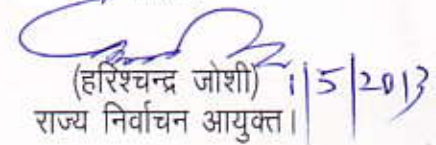 (हरिश्चन्द्र जोशी) 1|5|2013
राज्य निर्वाचन आयुक्त।